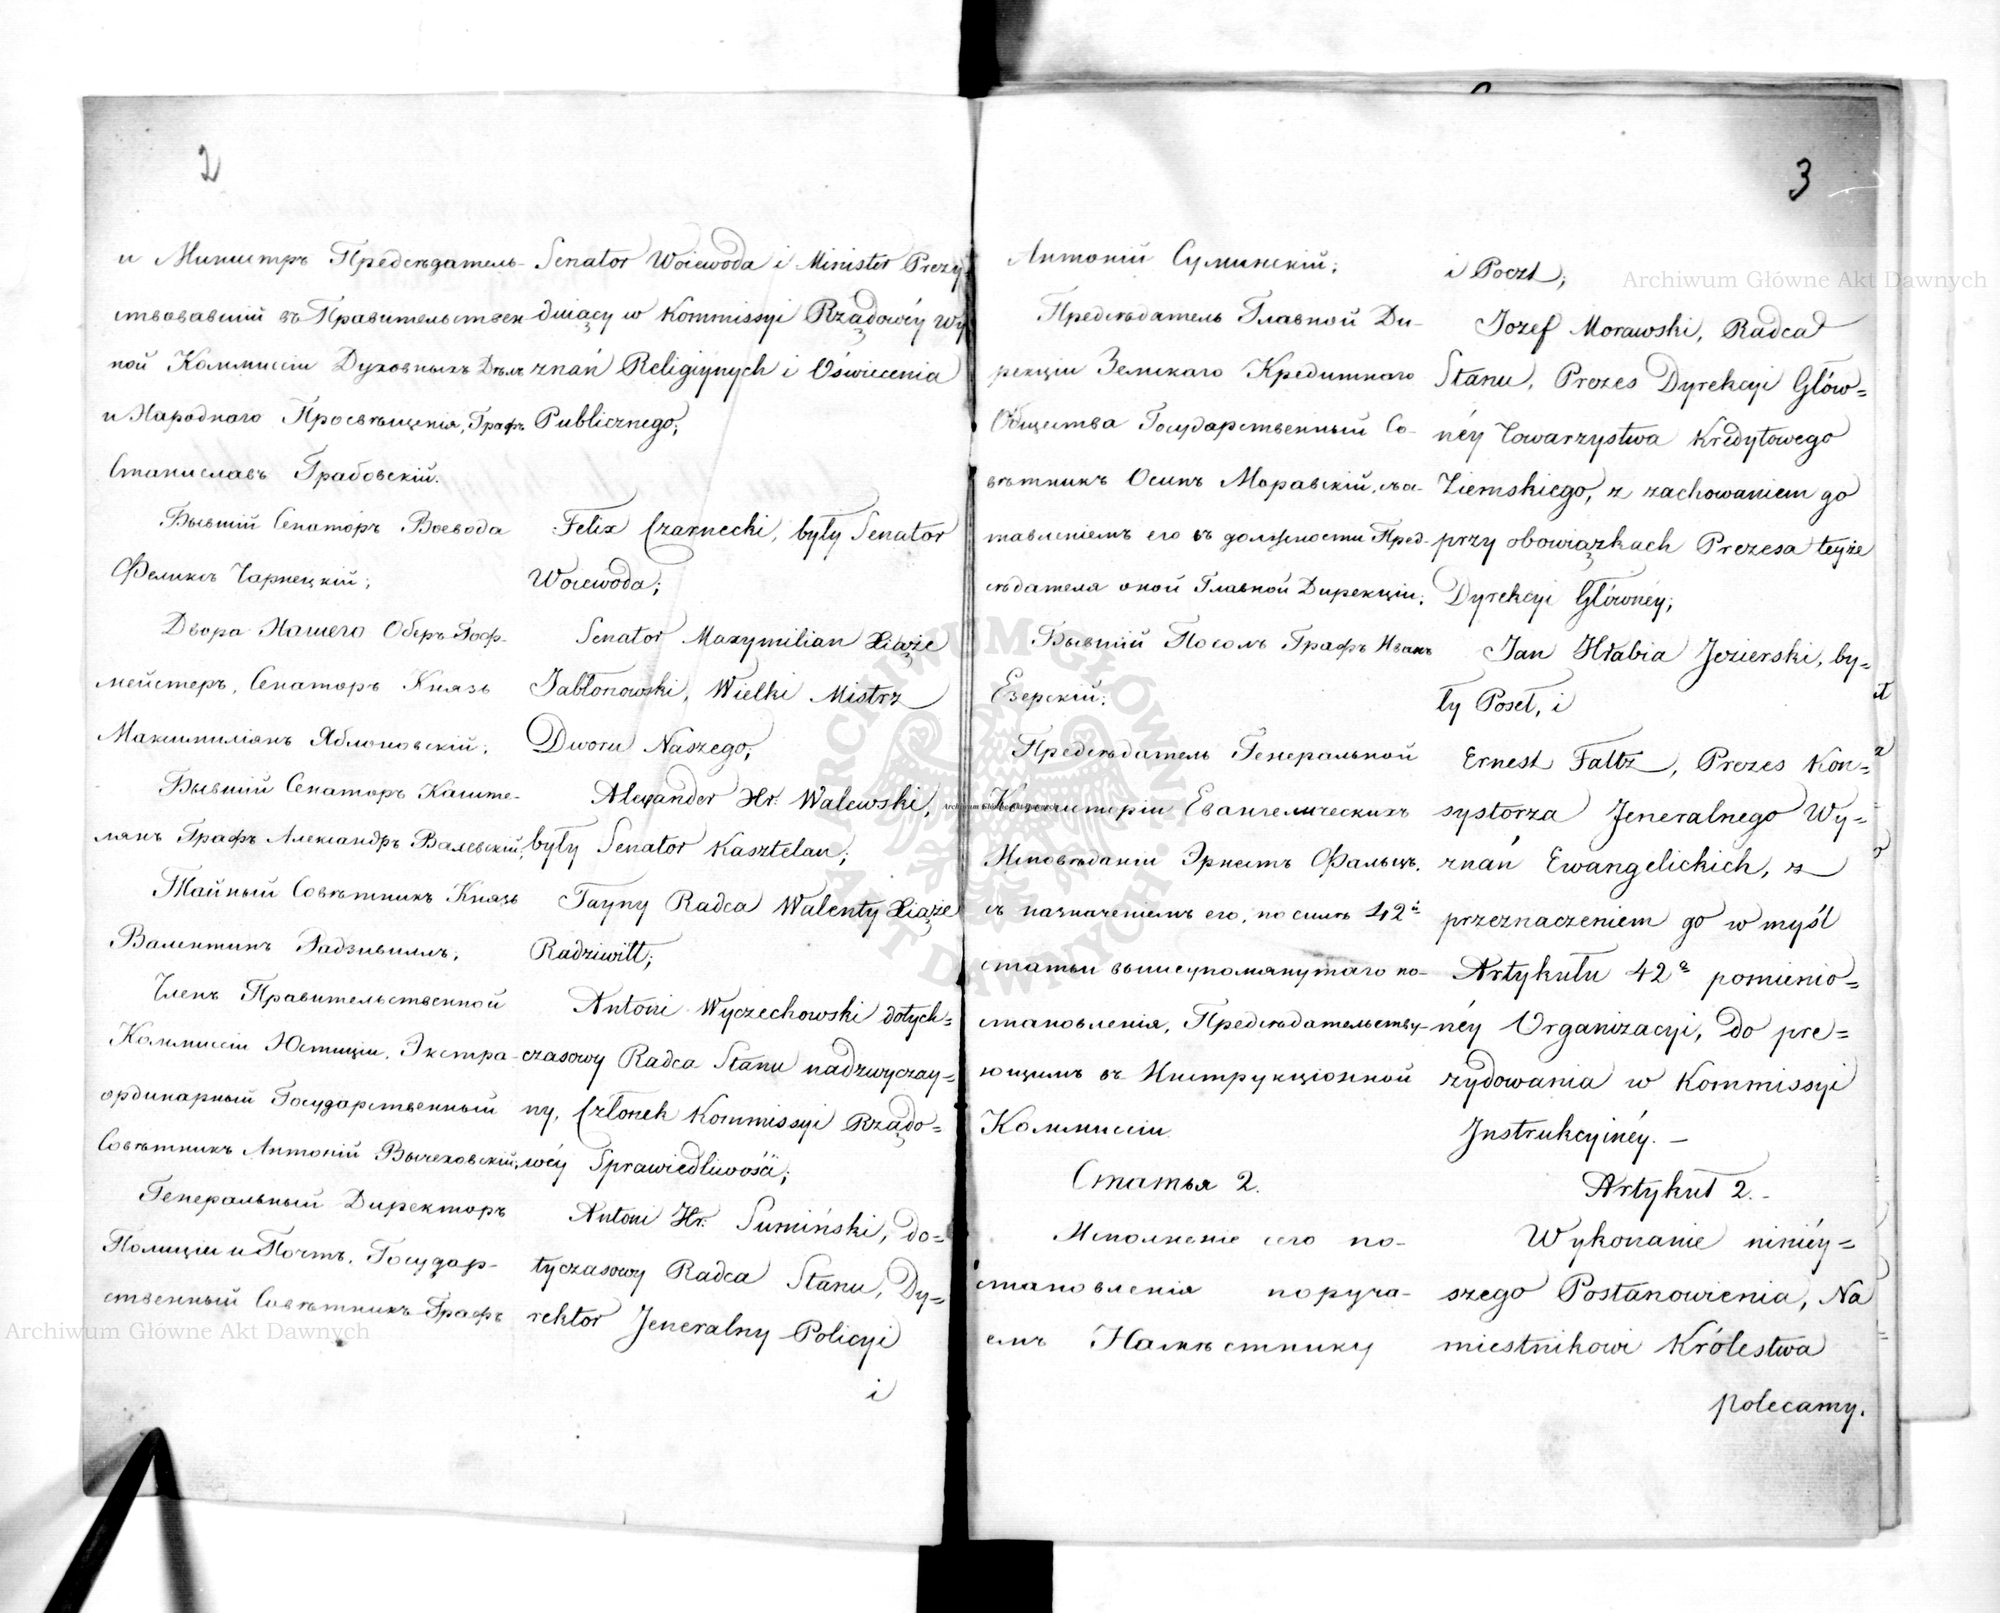 2
и Министръ Предсѣдатель-
ствовавшій въ Правительствен
ной Коммиссіи Духовныхъ Дѣлъ
и Народнаго Просвѣщенія, Графъ
Станиславъ Грабовскій.
Бывшій Сенаторъ Воевода
Феликсъ Чарнецкій;
Двора Нашего Оберъ-Гоф-
мейстеръ, Сенаторъ Князь
Максимиліянъ Яблоновскій;
Бывшій Сенаторъ Каште-
лянъ Графъ Александръ Валевскій;
Тайный Совѣтникъ Князь
Валентинъ Радзивиллъ;
Членъ Правительственной
Коммиссіи Юстиціи, Экстра-
ординарный Государственный
Совѣтникъ Антоній Вычеховскій;
Генеральный Директоръ
Полиціи и Почтъ, Государ-
ственный Совѣтникъ Графъ
Senator Woiewoda i Minister Prezy
duiący w Kommissyi Rządowéy Wy
znań Religiynych i Oświecenia
Publicznego;
Felix Czarnecki, były Senator
Woiewoda;
Senator Maxymilian Xiąże
Jabłonowski, Wielki Mistrz
Dworu Naszego;
Alexander Hr. Walewski,
były Senator Kasztelan;
Tayny Radca Walenty Xiąże
Radziwiłł;
Antoni Wyczechowski dotych=
czasowy Radca Stanu nadzwyczay=
ny, Członek Kommissyi Rządo=
wéy Sprawiedliwości;
Antoni Hr. Sumiński, do=
tyczasowy Radca Stanu, Dy=
rektor Jeneralny Policyi
i
3
Антоній Суминскій;
Предсѣдатель Главной Ди-
рекціи Земскаго Кредитнаго
Общества Государственный Со-
вѣтникъ Осипъ Моравскій, съ о-
ставленіемъ его въ должности Пред-
сѣдателя оной Главной Дирекціи;
Бывшій Посолъ Графъ Иванъ
Езерскій;
Предсѣдатель Генеральной
Консисторіи Евангелическихъ
Исповѣданій Эрнестъ Фальцъ,
съ назначеніемъ его, по силѣ 42й
статьи вышеупомянутаго по-
становленія, Предсѣдательству-
ющимъ въ Инструкціонной
Коммиссіи.
Статья 2.
Исполненіе сего по-
становленія поруча-
емъ Намѣстнику
i Poczt;
Jozef Morawski, Radca
Stanu, Prezes Dyrekcyi Głów=
néy Towarzystwa Kredytowego
Ziemskiego, z zachowaniem go
przy obowiązkach Prezesa teyże
Dyrekcyi Głównéy;
Jan Hrabia Jezierski, by=
ły Poseł, i
Ernest Faltz, Prezes Kon=
systorza Jeneralnego Wy=
znań Ewangelickich, z
przeznaczeniem go w myśl
Artykułu 42o pomienio=
néy Organizacyi, do pre=
zydowania w Kommissyi
Instrukcyinéy. —
Artykuł 2. -
Wykonanie niniéy=
szego Postanowienia, Na
miestnikowi Królestwa
polecamy.
Archiwum Główne Akt Dawnych
Archiwum Główne Akt Dawnych
Archiwum Główne Akt Dawnych
ARCHIWUM GŁÓWNE AKT DAWNYCH